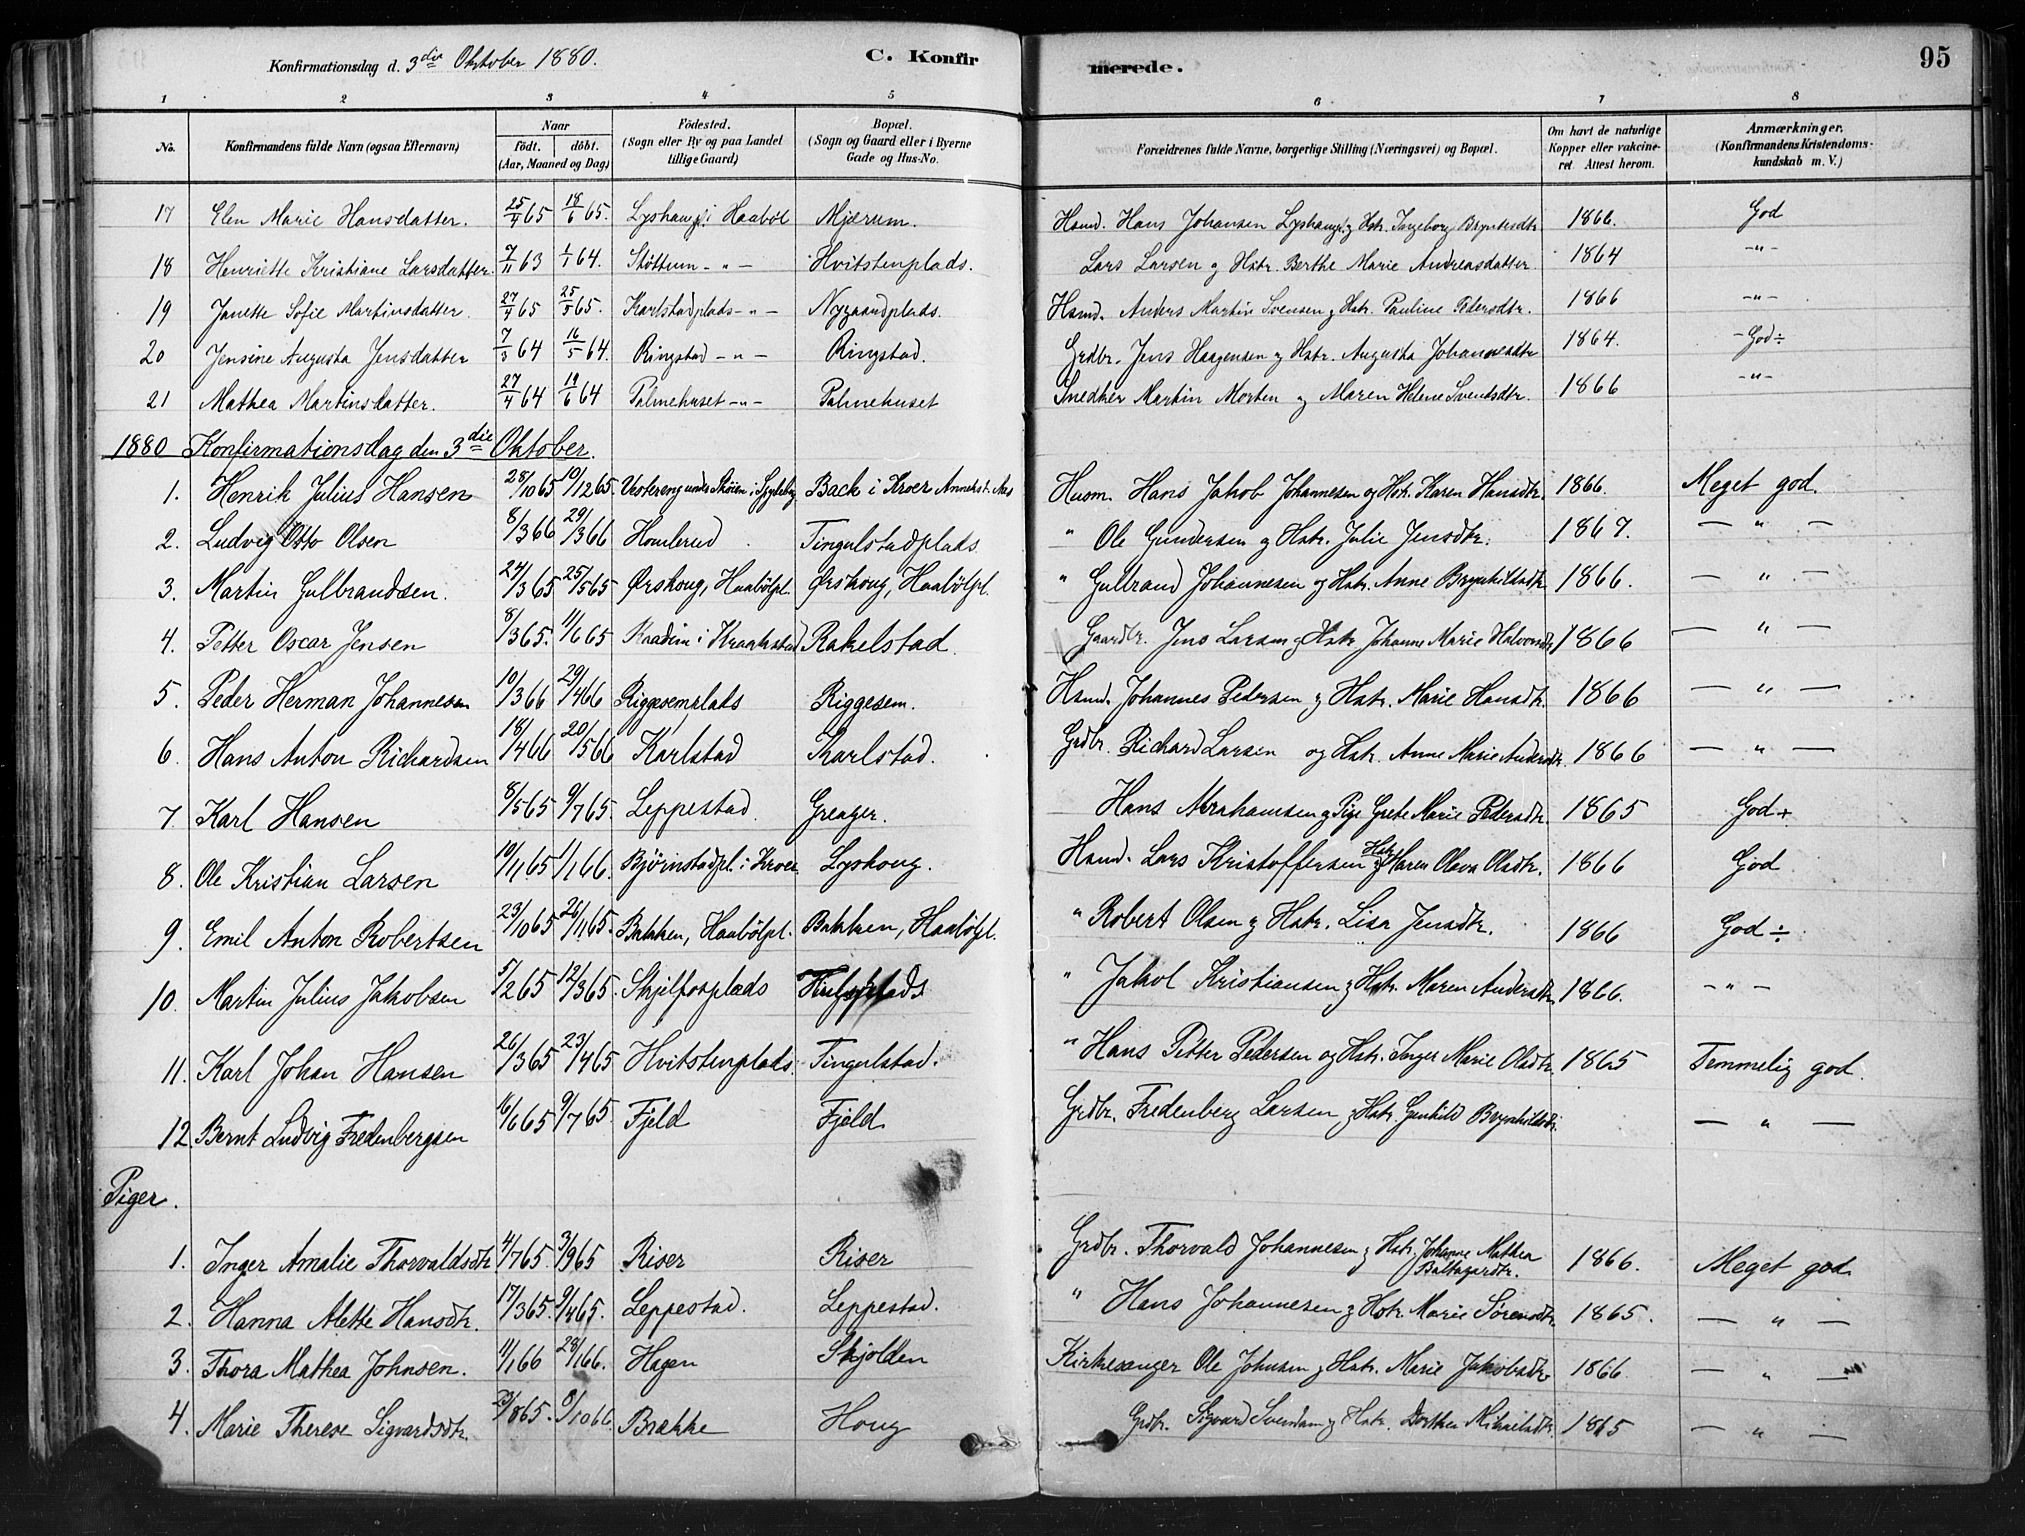 Konfirmationsdag d. 3die Oktober 1880. C. Konfirmerede. 95
1 2 3 4 5 6 7 8
No. Konfirmandens fulde Navn (ogsaa Efternavn) Naar født. døbt. (Aar, Maaned og Dag) Fødested. (Sogn eller By og paa Landet tillige Gaard) Bopæl. (Sogn og Gaard eller i Byerne Gade og Hus-No. Forældrenes fulde Navne, borgerlige Stilling (Næringsvei) og Bopæl. Om havt de naturlige Kopper eller vakcineret. Attest herom. Anmærkninger. (Konfirmandens Kristendomskundskab m. V.)
17 Elen Marie Hansdatter. 25/4 65 18/6 65. Lyshaug i Haabøl Mjærum. Hsmd. Hans Johansen Lyshaug og Hstr. Ingeborg 1866. God
18 Henriette Kristiane Larsdatter. 7/11 63 1/1 64. Støttum - " - Hvitstenplads. Lars Larsen og Hstr. Berthe Marie Andreasdatter 1864 - " -
19 Janette Sofie Martinsdatter. 27/4 65 25/5 65. Karlstadplads - " - Nygaardplads. Hsmd. Anders Martin Svensen og Hstr. Pauline Pedersdtr. 1866 - " -
20 Jensine Augusta Jensdatter 7/3 64 16/5 64. Ringstad - " - Ringstad. Grdbr. Jens Haagensen og Hstr. Augusta Johannesdtr 1864. - God ÷
21 Mathea Martinsdatter. 27/4 64 19/6 64 Palmehuset - " - Palmehuset Snedker Martin Morten og Maren Helene Svendsdtr. 1866 - " -
1880 Konfirmationsdag den 3die Oktober.
1. Henrik Julius Hansen 28/10 65 10/12 65. under Skøien i Back i Kroer Annekst. Aas Husm. Hans Jakob Johannesen og Hstr. Karen Hansdtr. 1866. Meget god.
2. Ludvig Otto Olsen 8/3 66 29/3 66 Homlerud Tingulstadplads. " Ole Gundersen og Hstr. Julie Jensdtr. 1867. — " —
3. Martin Gulbrandsen. 24/3 65 25/5 65 Ørskoug, Haabølpl. Ørskoug, Haabølpl. " Gulbrand Johannesen og Hstr. Anne Brynhilsdtr 1866. — " —
4. Petter Oscar Jensen 8/3 65. 11/6 65 i Kraakstad Rakelstad. Gaardbr. Jens Larsen og Hstr Johanne Marie Halvorsdtr 1866 — " —
5. Peder Herman Johannesen 10/3 66 29/4 66 Riggesemplads Riggesem. Hsmd. Johannes Pedersen og Hstr. Marie Hansdtr. 1866 — " —
6. Hans Anton Richardsen 18/4 66 20/5 66 Karlstad Karlstad. Grdbr. Richard Larsen og Hstr. Anne Marie Andersdtr. 1866 — " —
7. Karl Hansen 8/5 65 9/7 65. Leppestad. Greager. Hans Abrahamsen og Pige Grete Marie Pedersdtr. 1865 God +
8. Ole Kristian Larsen 10/11 65 1/1 66. Bjørnstadpl. i Kroer Lyskoug. Hsmd. Lars Kristoffersen og Hstr. Maren Oleva Olsdtr. 1866 God
9. Emil Anton Robertsen 23/10 65 26/11 65. Bakken, Haabølpl. Bakken, Haabølpl. " Robert Olsen og Hstr. Lisa Jensdtr. 1866 God ÷
10. Martin Julius Jakobsen 5/2 65 12/3 65. Skjelfosplads " Jakob Kristiansen og Hstr. Maren Andersdtr. 1866. - " -
11. Karl Johan Hansen 26/3 65 23/4 65 Hvitstenplads. Tingulstad. " Hans Petter Pedersen og Hstr. Inger Marie Olsdtr. 1865 Temmelig god.
12. Bernt Ludvig Fredenbergsen 16/6 65 9/7 65. Fjeld Fjeld. Grdbr. Fredenberg Larsen og Hstr. Gunhild Brynhildsdtr. — " —
Piger.
1. Inger Amalie Thorvaldsdtr 4/7 65. 3/9 65 Riser Riser Grdbr. Thorvald Johannesen og Hstr. Johanne Mathea Baltazardtr. 1866. Meget god.
2. Hanna Alette Hansdtr. 17/3 65. 9/4 65. Leppestad. Leppestad. " Hans Johannesen og Hstr. Marie Sørensdtr. 1865. — " —
3. Thora Mathea Johnsen. 11/1 66 28/1 66. Hagen Skjolden Kirkesanger Ole Johnsen og Hstr. Marie Jakobsdtr 1866. — " —
4. Marie Therese Sigvardsdtr. /8 65. 8/10 66. Brække Houg Grdbr. Sigvard Svendsen og Hstr. Dorthea Mikaelsdtr. 1865 — " —